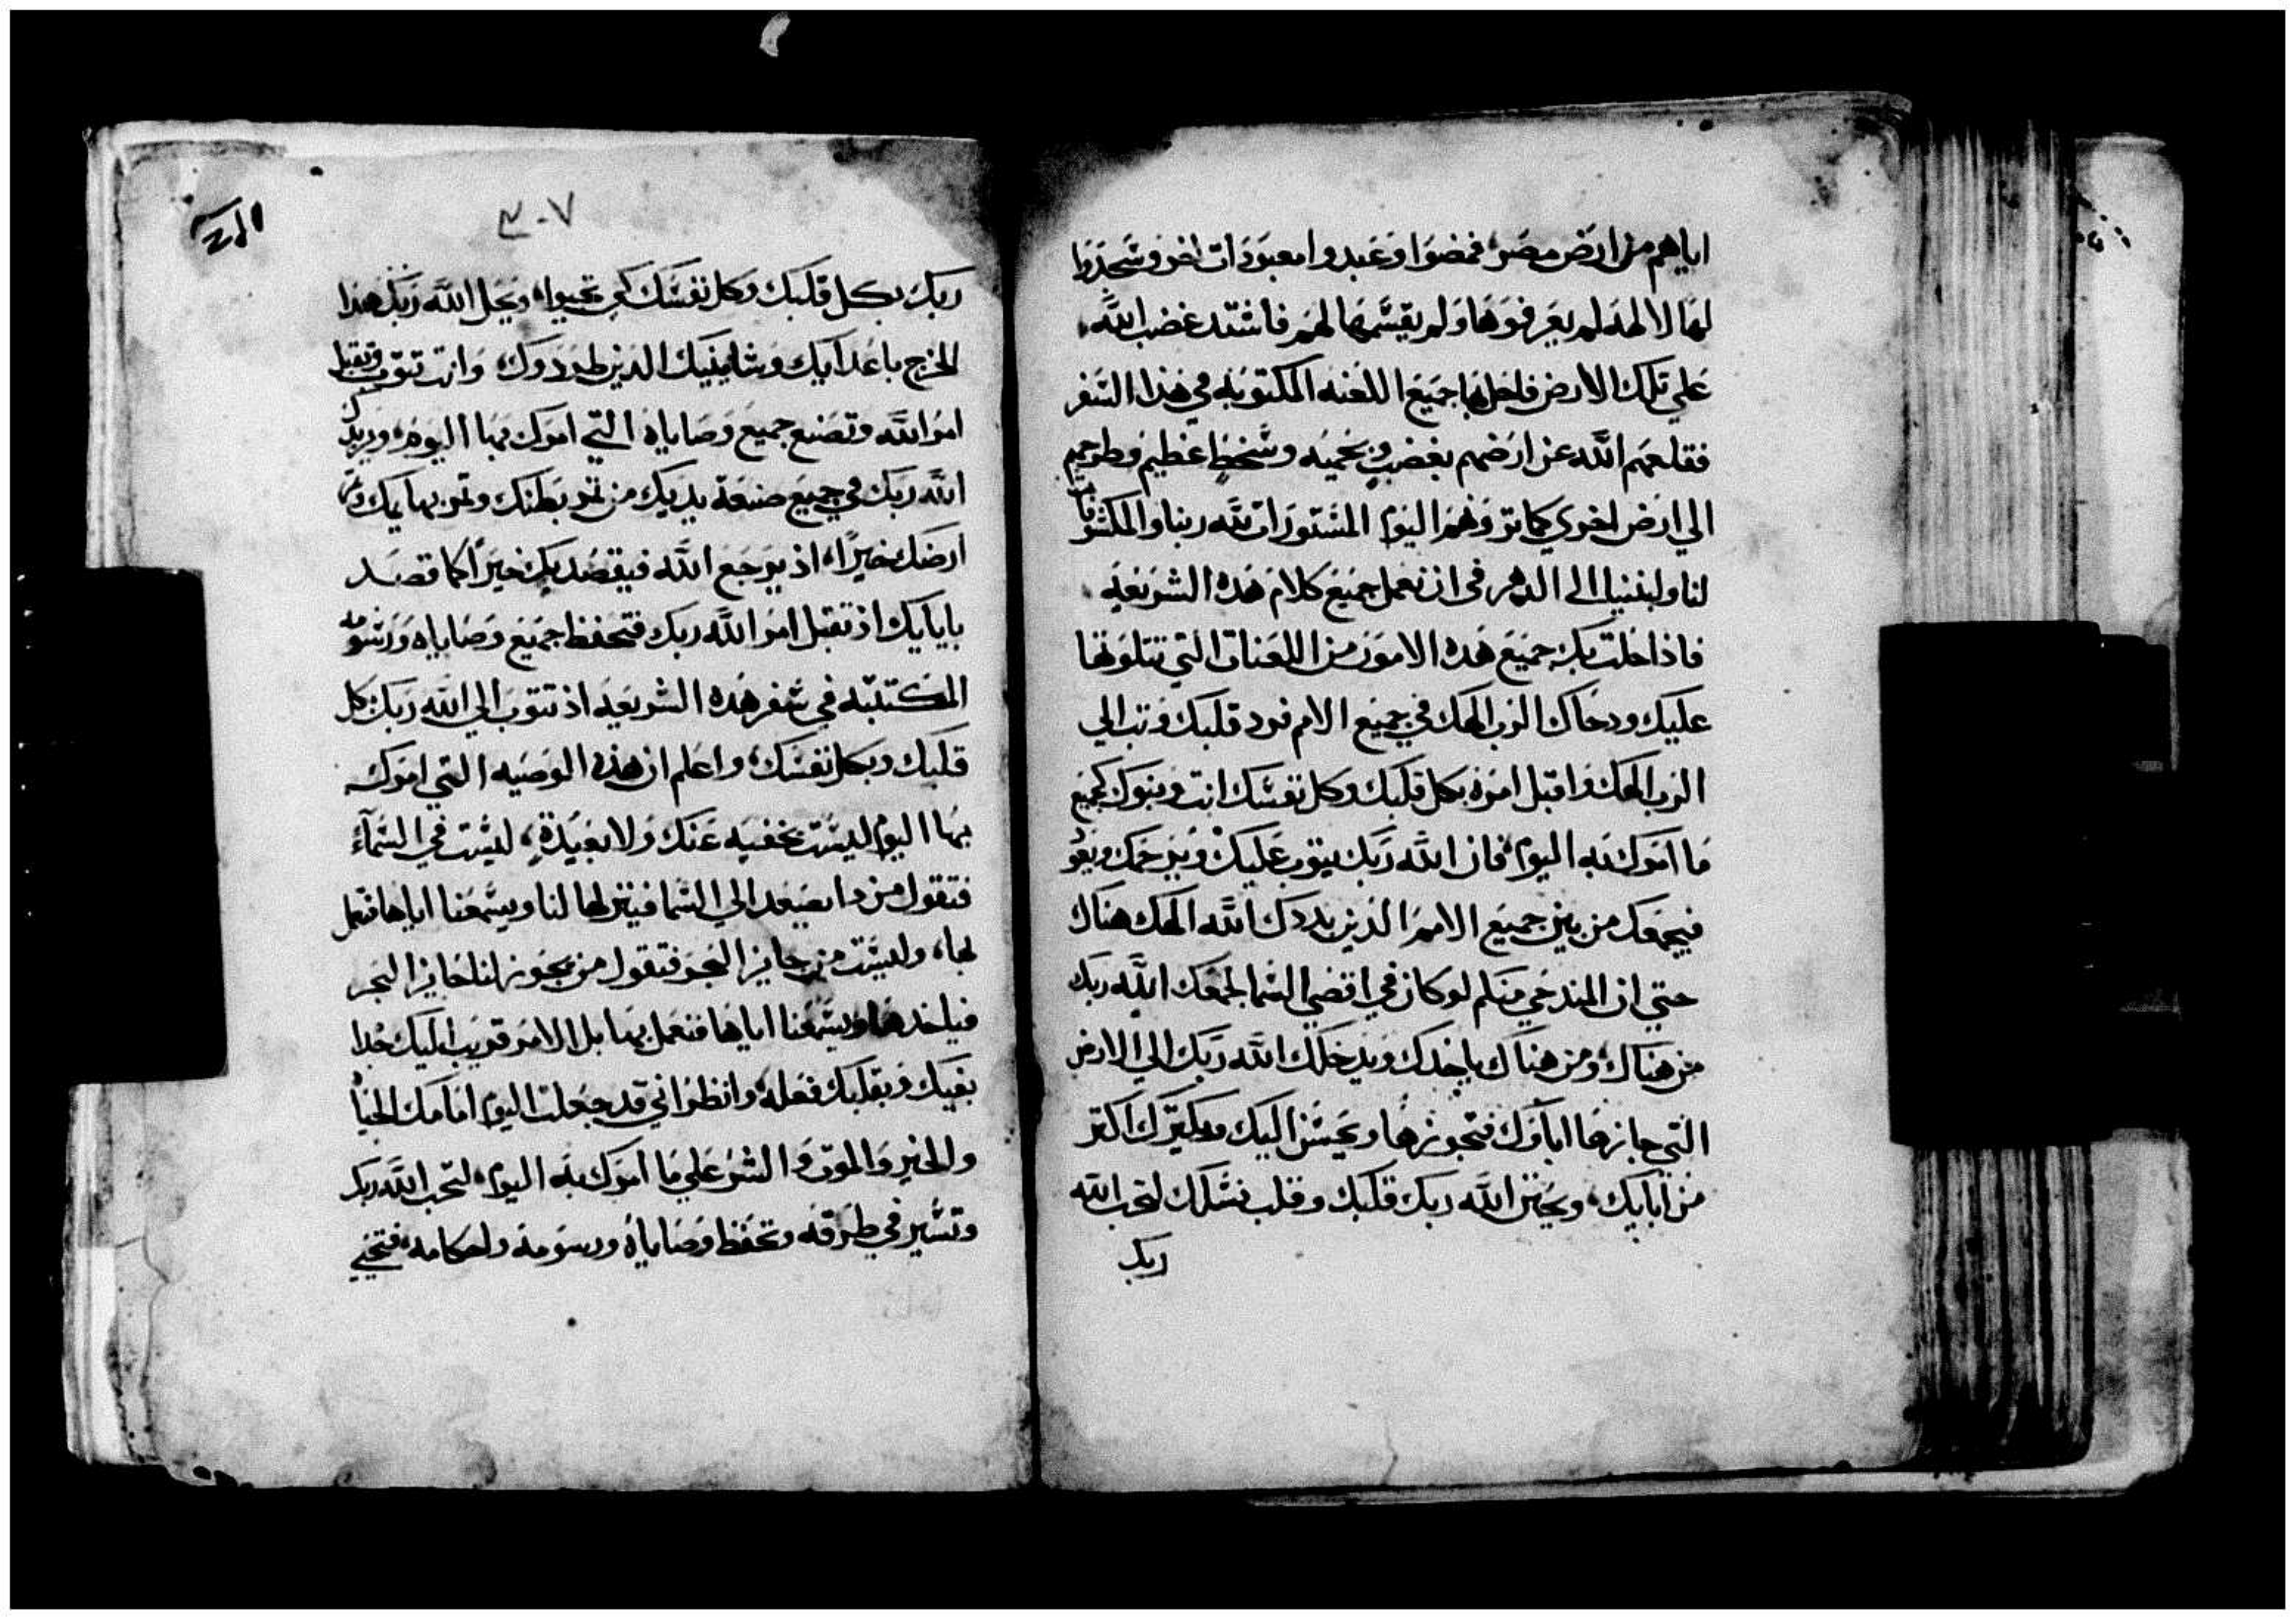 اياهم من ارض مصر فمضوا وعبدوا معبودات اخر وسجدوا
لها لالهه لم يعرفوها ولم يقسمها لهم فاشتد غضب الله
علي تلك الارض فاحل بها جميع اللعنه المكتوبه في هذا السفر
فقلعهم الله عن ارضهم بغضب وبحميه وسخط عظيم وطرحهم
الي ارض اخري كما تروهم اليوم المستورات لله ربنا والمكشوفات
لنا ولبنينا الى الدهر في ان نعمل جميع كلام هده الشريعه
فاذا حلت بك جميع هده الامور من اللعنات التي تتلونها
عليك ودحاك الرب الهك في جميع الامم فرد قلبك وتب الي
الرب الهك واقبل امره بكل قلبك وكل نفسك انت وبنوك كجميع
ما امرك به اليوم فان الله ربك يتوب عليك ويرحمك ويعود
فيجمعك من بين جميع الامم الذين بددك الله الهك هناك
حتي ان المندحي منكم لو كان في اقصي السما لجمعك الله ربك
من هناك ومن هناك ياخدك ويدخلك الله ربك الي الارض
التي حازها اباوك فتحوزها ويحسن اليك ويكترك اكتر
من ابايك ويختن الله ربك قلبك وقلب نسلك لتحب الله
ربك
٣٠٧
ربك بكل قلبك وكل نفسك كي تحيوا ويحل الله ربك هذا
الحرج باعدايك وشانييك الدين طردوك وانت تتوب وتقبل
امر الله وتصنع جميع وصاياه التي امرك بها اليوم ويزيدك
الله ربك في جميع صنعة يديك من تمر بطنك وتمر بهايمك وتمر
ارضك خيرا اذ يرجع الله فيقصد بك خيرا كما قصد
بابايك اذ تقبل امر الله ربك فتحفظ جميع وصاياه ورسومه
المكتتبه في سفر هده الشريعه اذ تتوب الي الله ربك بكل
قلبك وبكل نفسك واعلم ان هذه الوصيه التي امرك
بها اليوم ليست بخفيه عنك ولا بعيدة ليست في السماء
فتقول من دا يصعد الي السما فينزلها لنا ويسمعنا اياها فنعمل
بها وليست من حايز البحر فتقول من يجوز لنا حايز البحر
فياخدها ويسمعنا اياها فنعمل بها بل الامر قريب اليك جدا
بفيك وبقلبك فعله وانظر اني قد جعلت اليوم امامك الحياه
والخير والموت والشر علي ما امرك به اليوم لتحب الله ربك
وتسير في طرقه وتحفظ وصاياه ورسومه واحكامه فتحيي